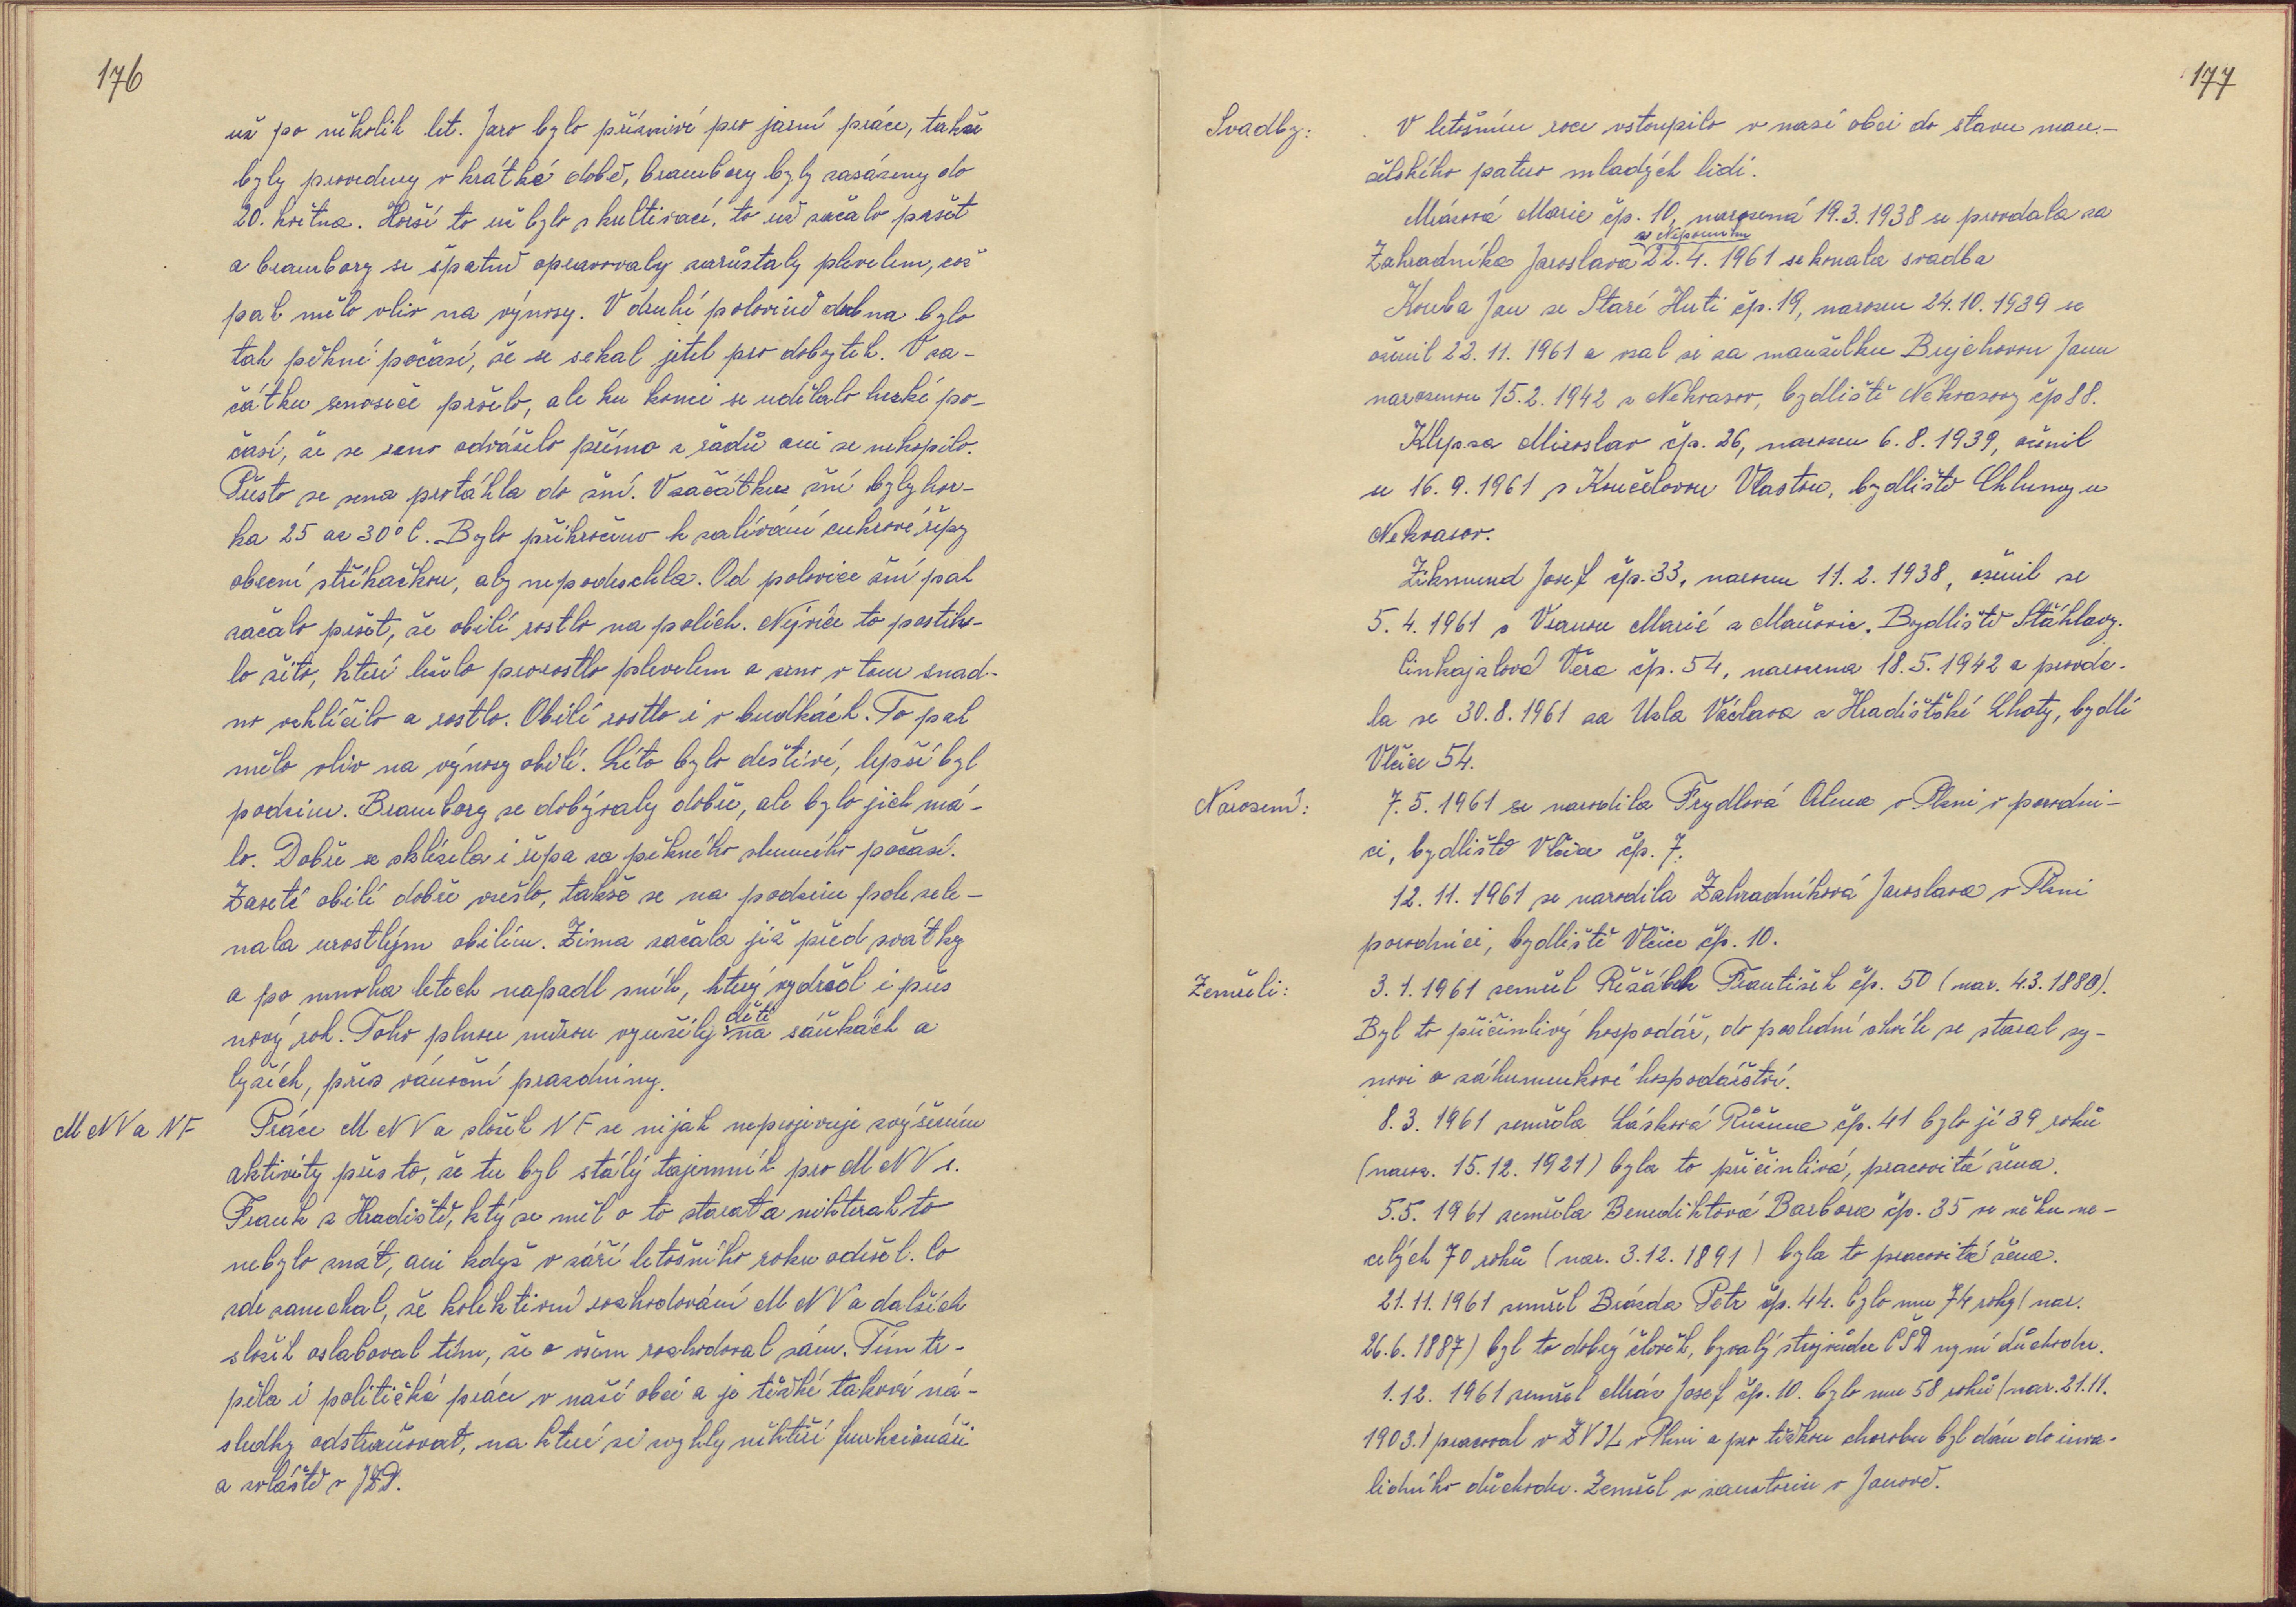 176
už po několik let. Jaro bylo příznivé pro jarní práce, takže
byly provedeny v krátké době, brambory byly zasázeny do
20. května. Horší to už bylo s kultivací, to už začalo pršet
a brambory se špatně opravovaly zarůstaly plevelem, což
pak mělo vliv na výnosy. V druhé polovině dubna bylo
tak pěkné počasí, že se sekal jetel pro dobytek. V za-
čátku senoseče pršelo, ale ku konci se udělalo hezké po-
časí, že se seno odváželo přímo z řádů ani se nekopilo.
Přesto se sena protáhla do žní. V začátku žní byly hor-
ka 25 až 30°C. Bylo přikročeno k zalívání cukrové řepy
obecní stříkačkou, aby nepodschla. Od polovice žní pak
začalo pršet, že obilí rostlo na polích. Nejvíce to postih-
lo žito, které leželo prorostlo plevelem a zrno v tom snad-
no vzklíčilo a rostlo. Obilí rostlo i v budkách. To pak
mělo vliv na výnosy obilí. Léto bylo deštivé, lepší byl
podzim. Brambory se dobývaly dobře, ale bylo jich má-
lo. Dobře se sklízela i řepa za pěkného slunného počasí.
Zaseté obilí dobře vzešlo, takže se na podzim pole zele-
nala vzrostlým obilím. Zima začala již před svátky
a po mnoha letech napadl sníh, který vydržel i přes
nový rok. Toho plnou měrou využily děti na sáňkách a
lyžích, přes vánoční prazdniny.
MNV a NF Práce MNV a složek NF se nijak neprojevuje zvýšením
aktivity přes to, že tu byl stálý tajemník pro MNV s.
Frank z Hradiště, ktý se měl o to starat a nikterak to
nebylo znát, ani když v září letošního roku odešel. Co
zde zanechal, že kolektivní rozhodování MNV a dalších
složek oslaboval tím, že o všem rozhodoval sám. Tím tr-
pěla i politická práce v naší obci a je těžké takové ná-
sledky odstraňovat, na které si zvykly někteří funkcionáři
a zvláště v JZD.
177
Svadby: V letošním roce vstoupilo v nasí obci do stavu man-
želského patero mladých lidí.
Mrázová Marie čp. 10, narozená 19.3.1938 se provdala za
Zahradníka Jaroslava z Nepomuku 22.4. 1961 se konala svadba
Kouba Jan ze Staré Huti čp. 19, narozen 24.10.1939 se
oženil 22.11.1961 a vzal si za manželku Bujehovou Janu
narozenou 15.2.1942 z Nekvasov, bydliště Nekvasovy čp 88.
Klepsa Miroslav čp. 26, narozen 6.8.1939, oženil
se 16.9.1961 s Koučelovou Vlastou, bydliště Chlumy u
Nekvasov.
Zikmund Josef čp. 33, narozen 11.2.1938, oženil se
5.4.1961 s Vranou Marií z Mačovic. Bydliště Štáhlavy.
Cinkajzlová Věra čp. 54, narozena 18.5.1942 a provda-
la se 30.8.1961 za Uzla Václava z Hradištské Lhoty, bydlí
Vlčice 54.
Narození: 7.5.1961 se narodila Frydlová Alena v Plzni v porodni-
ci, bydliště Vlčice čp. 7.
12.11.1961 se narodila Zahradníková Jaroslava v Plzni
porodnici, bydliště Vlčice čp. 10.
Zemřeli: 3.1.1961 zemřel Řežábek František čp. 50 (nar. 4.3.1880).
Byl to přičinlivý hospodář, do poslední chvíle se staral sy-
novi o záhumenkové hospodářství.
8.3.1961 zemřela Lásková Růžena čp. 41 bylo jí 39 roků
(naroz. 15.12.1921) byla to přičinlivá, pracovitá žena.
5.5.1961 zemřela Benediktová Barbora čp. 35 ve věku ne-
celých 70 roků (nar. 3.12.1891) byla to pracovitá žena.
21.11.1961 zemřel Brázda Petr čp. 44. bylo mu 74 roky (nar.
26.6.1887) byl to dobrý člověk, byvalý strojvůdce ČSD nyní důchodce.
1.12.1961 zemřel Mráz Josef čp. 10. bylo mu 58 roků (nar. 21.11.
1903.) pracoval v ZVIL v Plzni a pro těžkou chorobu byl dán do inva-
lidního důchodu. Zemřel v sanatoriu v Janově.